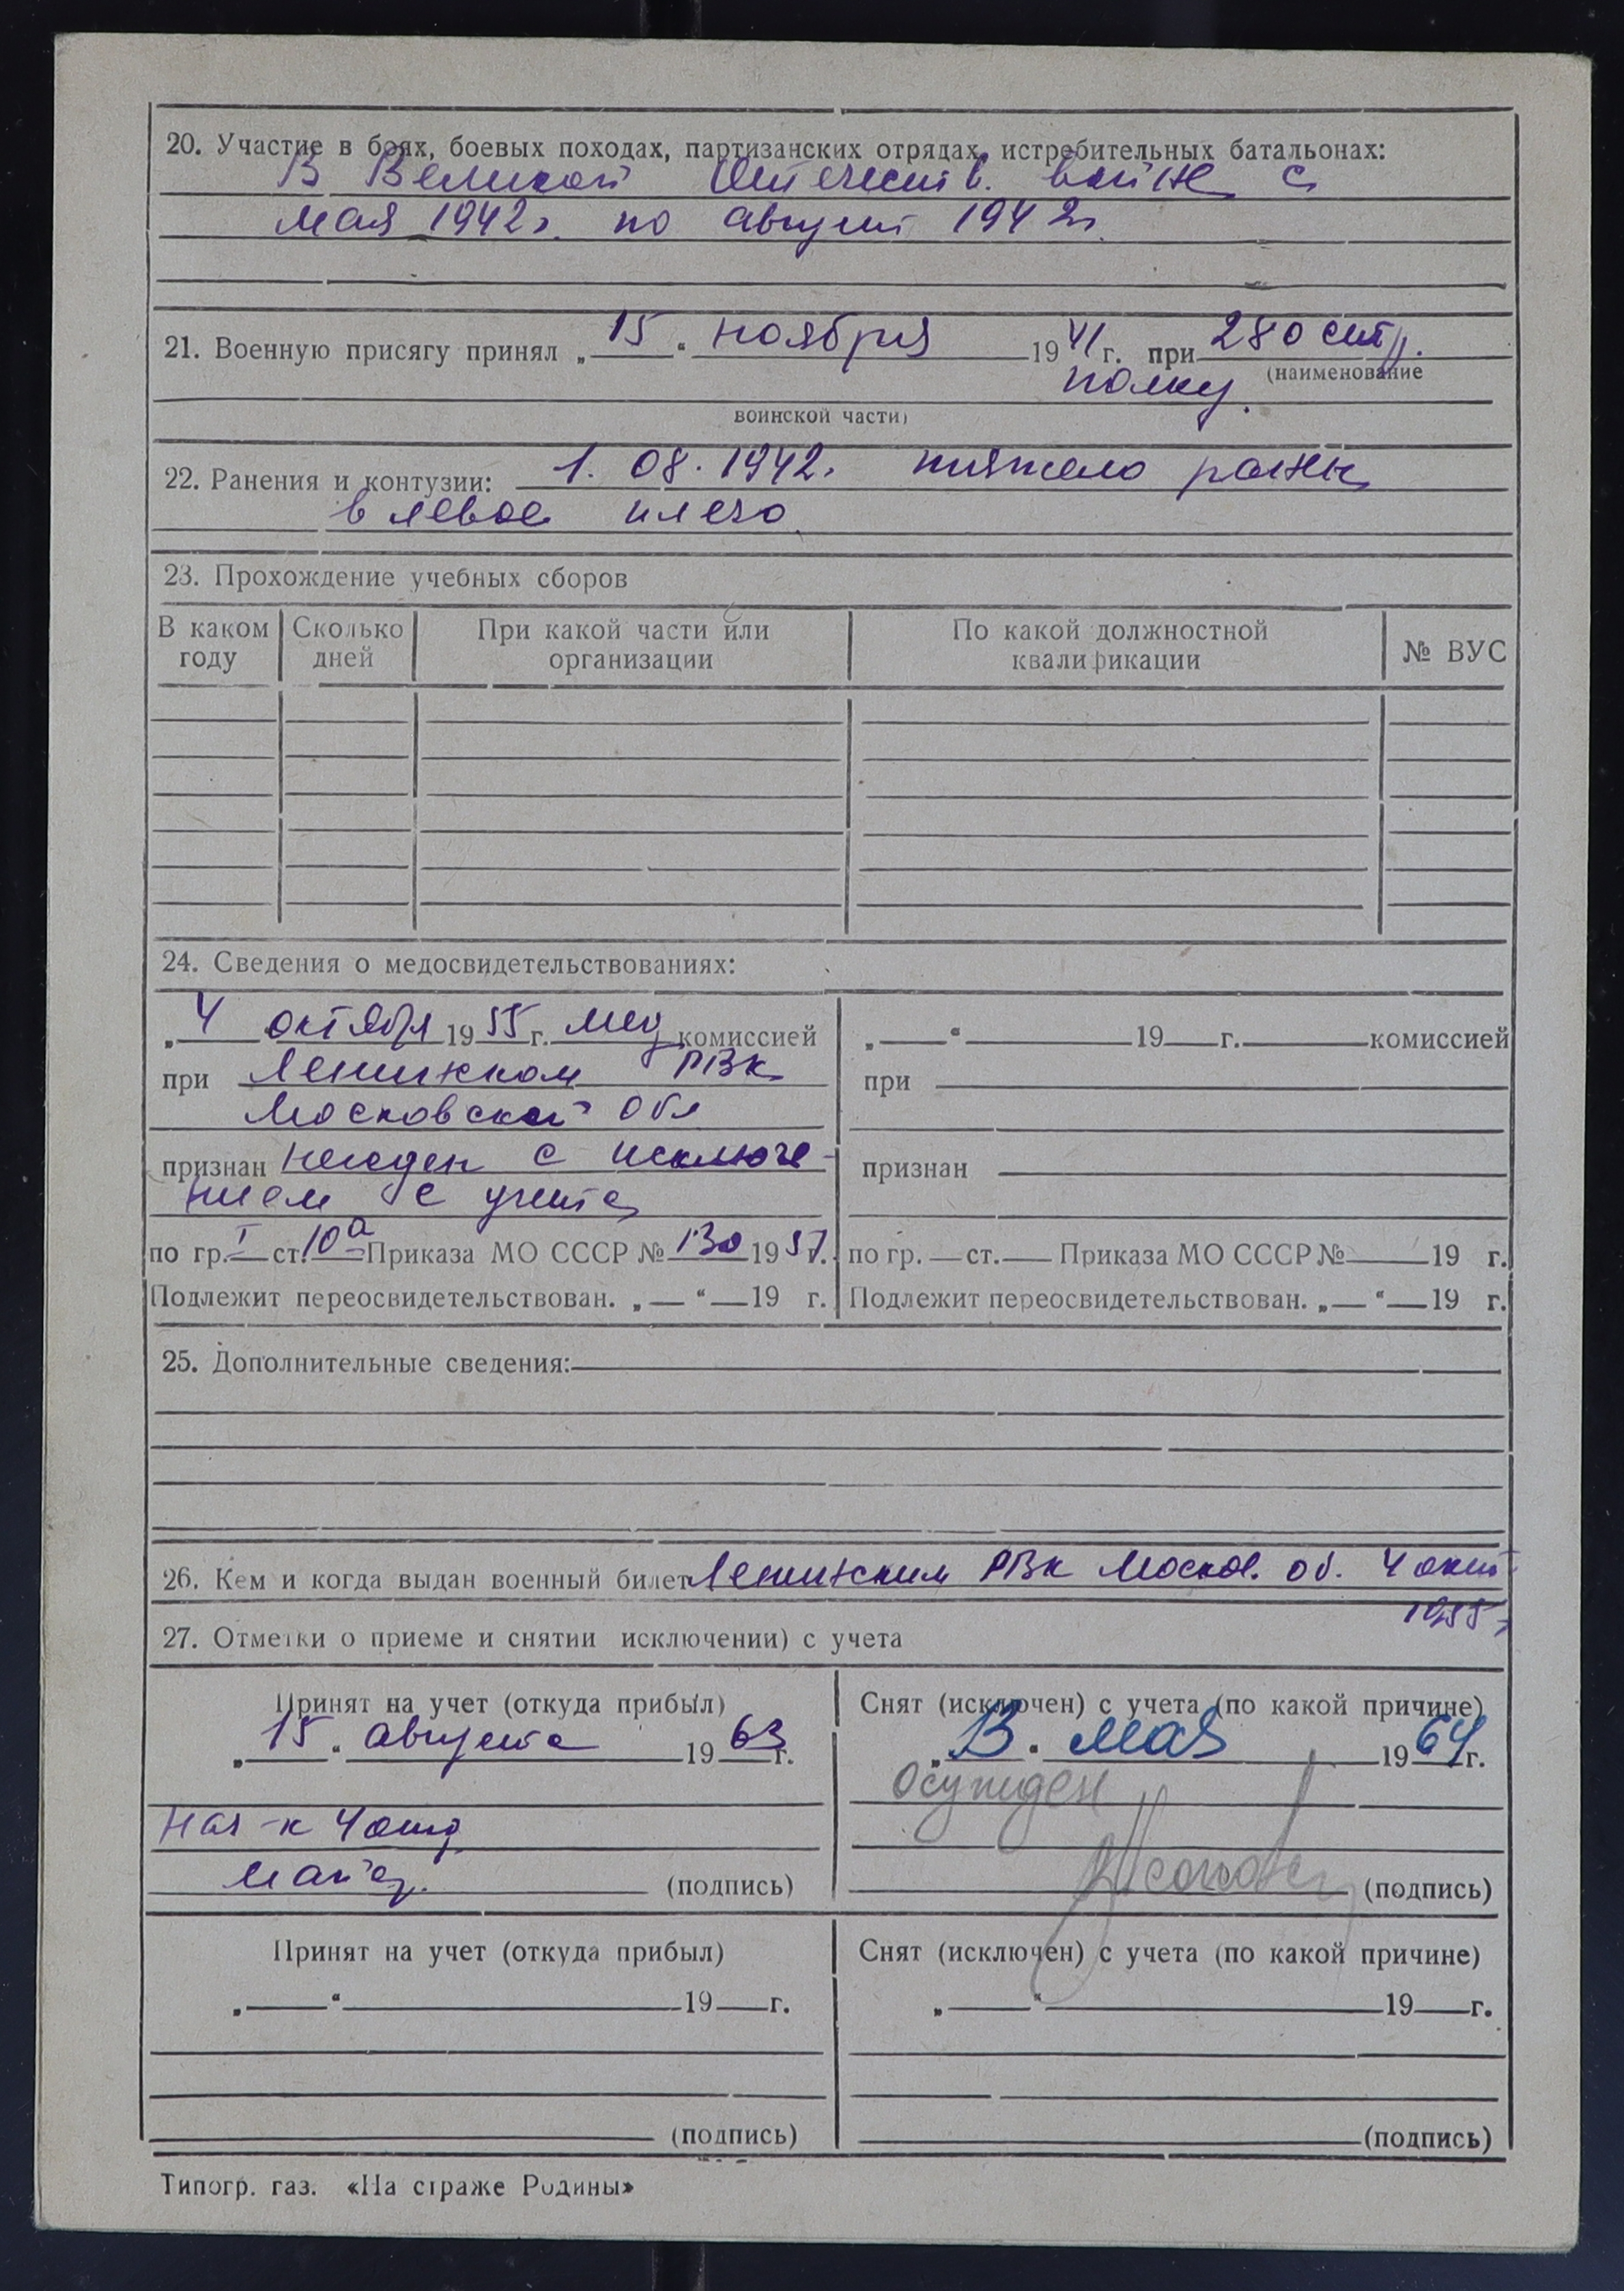 20. Участие в боях, боевых походах, партизанских отрядах, истребительных батальонах:
В Великой Отечеств. войне с
мая 1942г. по август 1942г.
21. Военную присягу принял „15“ ноября 1941г. при 280 стр.
(наименование
полку.
воинской части)
22. Ранения и контузии: 1. 08. 1942г. тяжело ранен
в левое плечо
23. Прохождение учебных сборов
В каком году Сколько дней При какой части или организации По какой должностной квалификации № ВУС
24. Сведения о медосвидетельствованиях:
„4 октября 1955г. мед комиссией
при Ленинском РВК
Московской обл
признан негоден с исключе-
нием с учета
по гр. I ст. 10а Приказа МО СССР № 130 1951г.
Подлежит переосвидетельствован. „ “ 19 г.
„ “ 19 г. комиссией
при
признан
по гр. ст. Приказа МО СССР № 19 г.
Подлежит переосвидетельствован. „ “ 19 г.
25. Дополнительные сведения:
26. Кем и когда выдан военный билет Ленинским РВК Москов. об. 4 окт
1955г
27. Отметки о приеме и снятии исключении) с учета
Принят на учет (откуда прибыл)
„15“ августа 1963г.
Нач-к 4 отд
(подпись)
Снят (исключен) с учета (по какой причине)
„13“ мая 1964г.
осужден
(подпись)
Принят на учет (откуда прибыл)
„ “ 19 г.
(подпись)
Снят (исключен) с учета (по какой причине)
„ “ 19 г.
(подпись)
Типогр. газ. «На страже Родины»